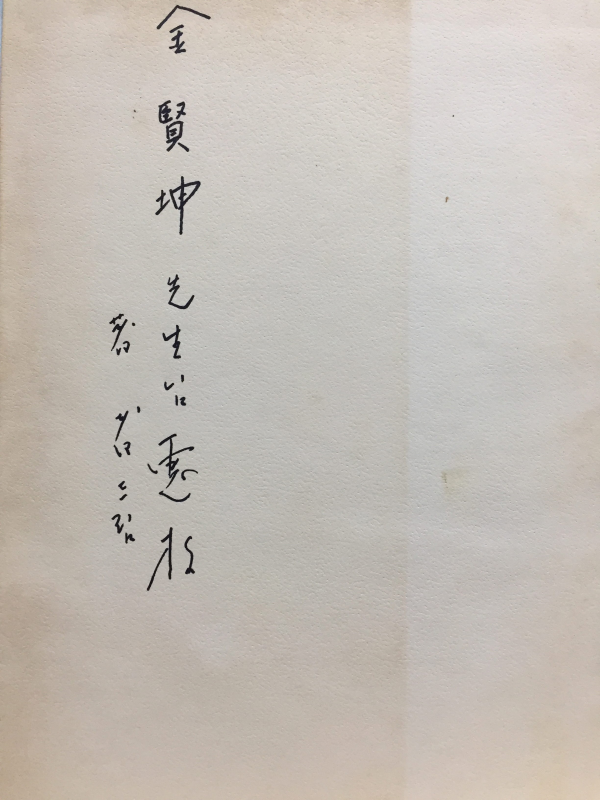 金賢坤先生台惠存
著者